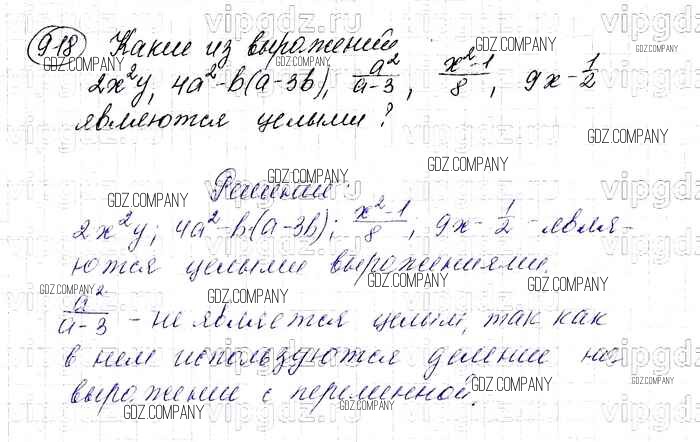 918 Какие из выражений
2x²y, 4a²-b(a-3b), a²/a-3, x²-1/8, 9x-1/2
являются целыми?
Решение:
2x²y; 4a²-b(a-3b); x²-1/8, 9x-1/2 - явля-
ются целыми выражениями.
a²/a-3 - не является целым, так как
в нем используются деление на
выражение с переменной.